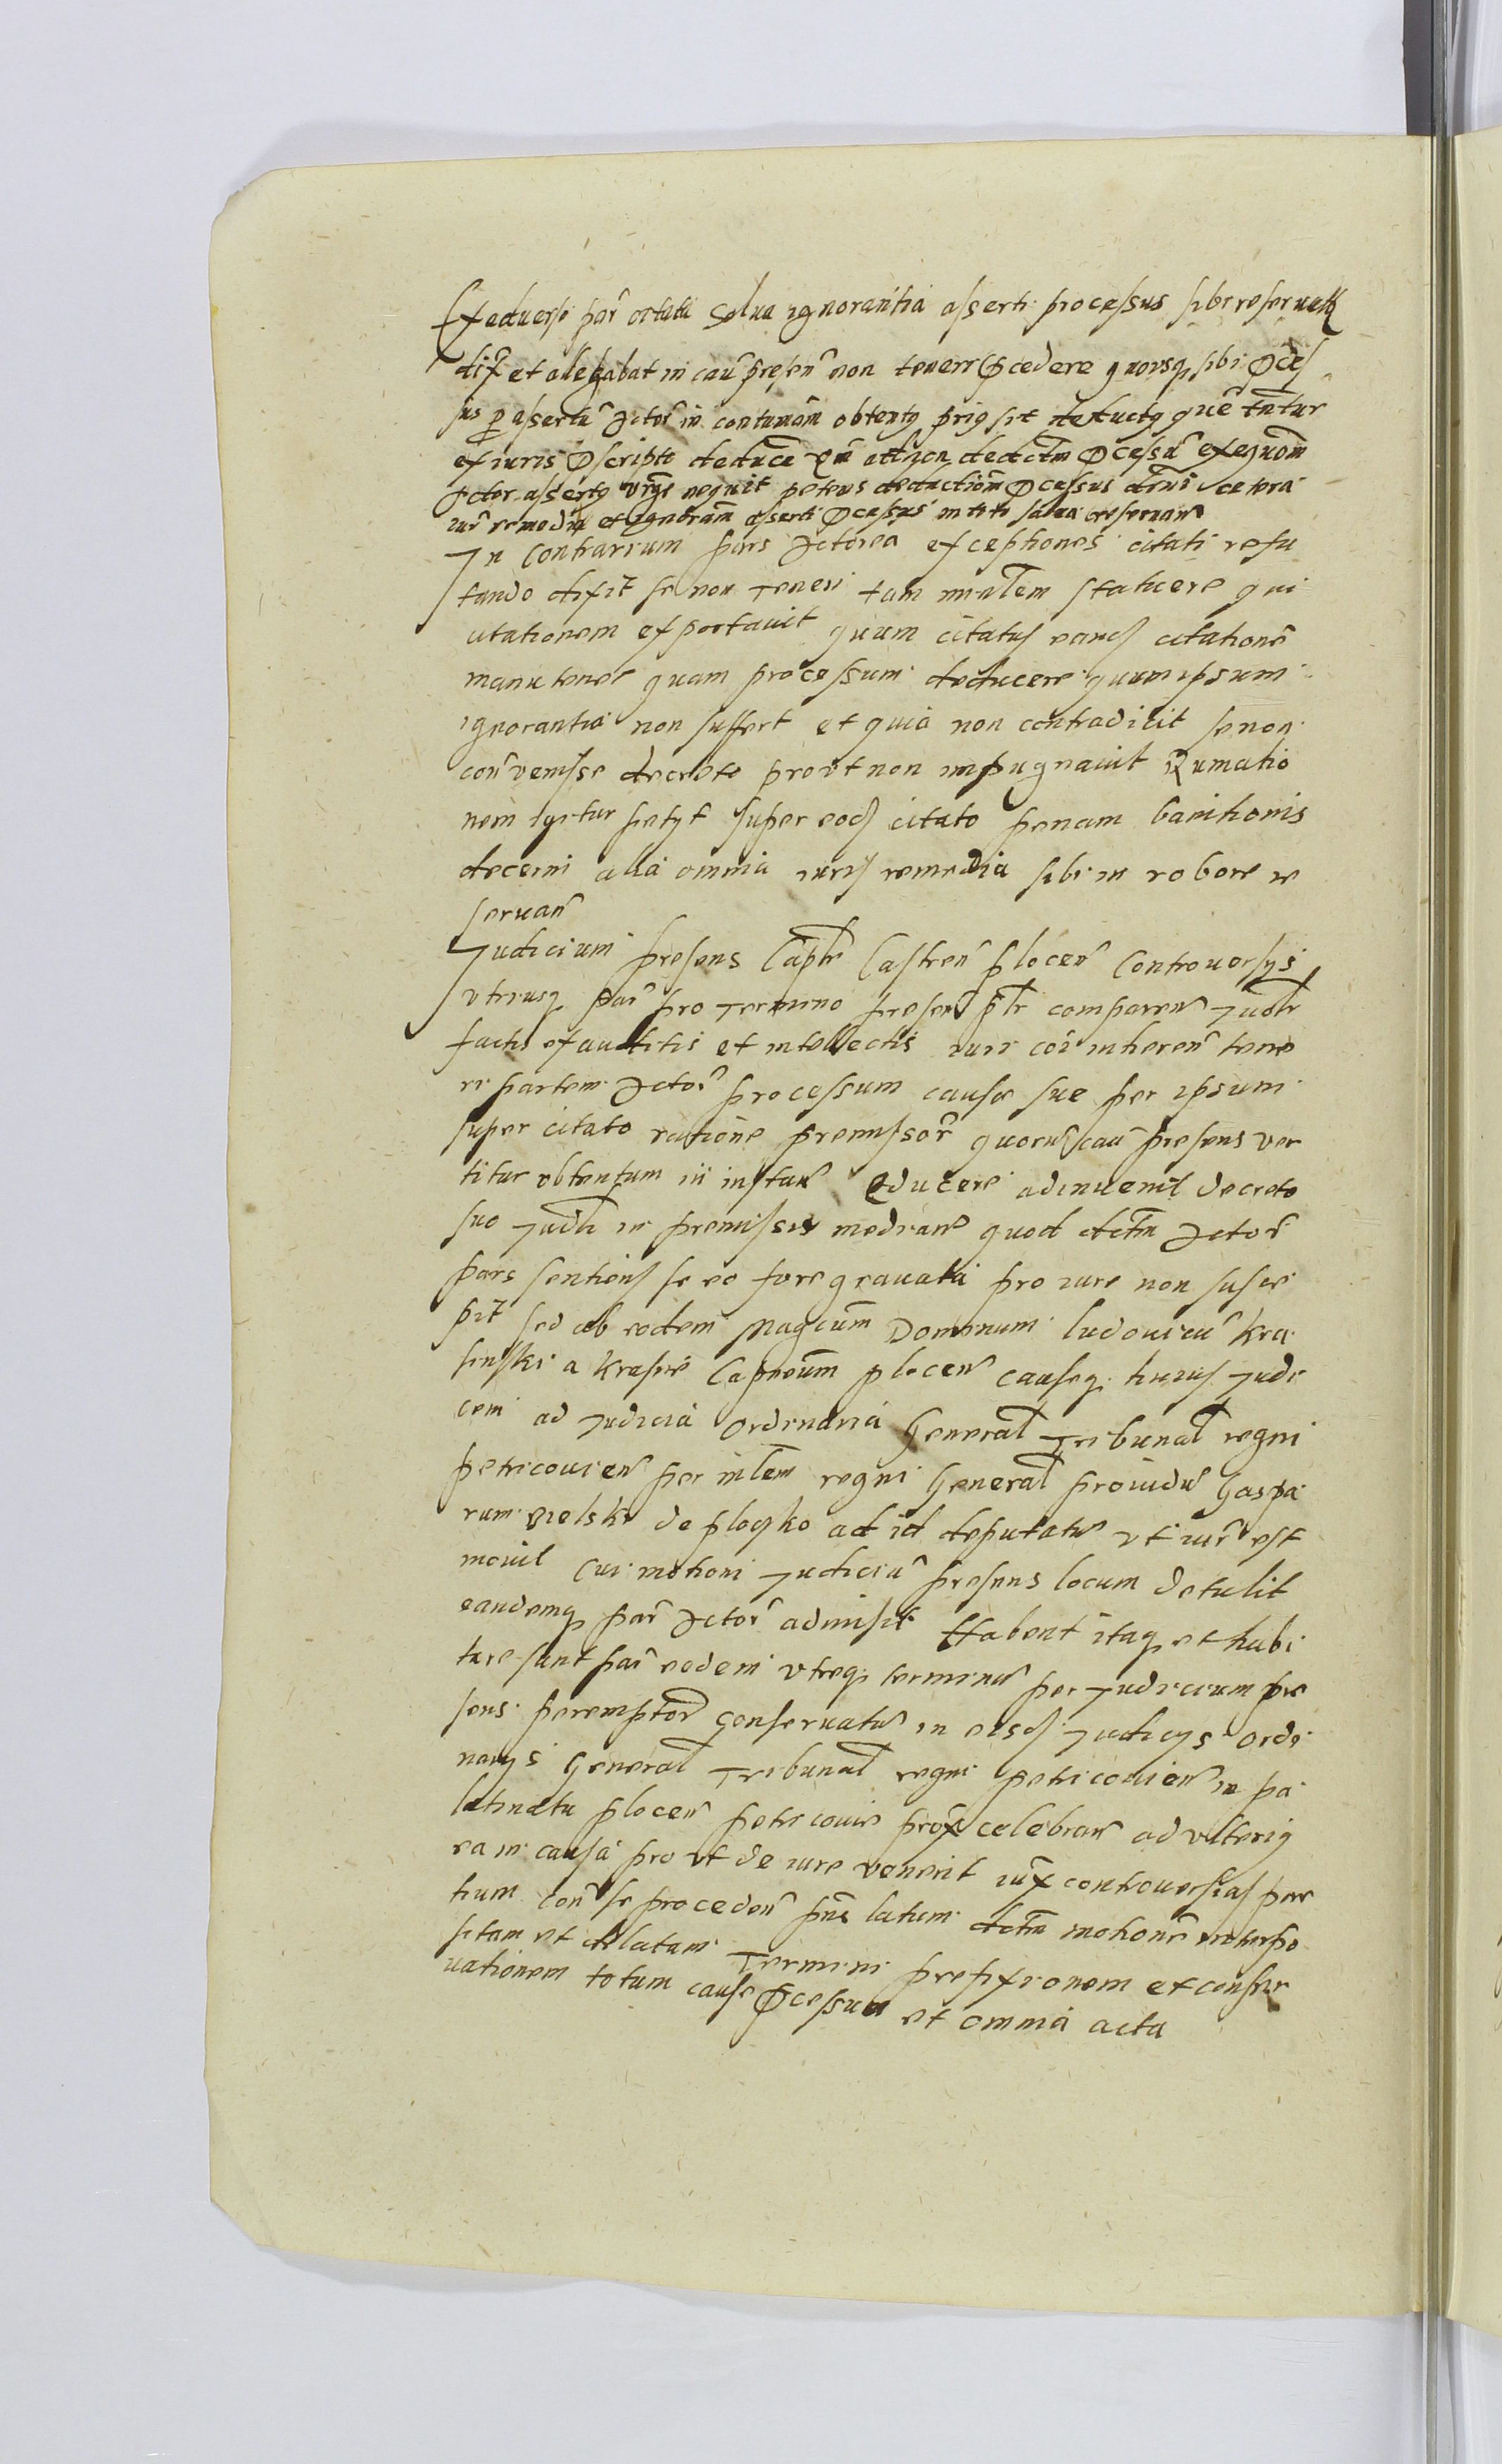 Ex adverso par citata Salva ignorantia asserti processus sibi reservata
dix et allegabat in cau presen non teneri procedere quousq sibi proces
sus per assertu Actor in contumam obtentus prius sit deductus quem tentur
ex iuris prescripto deducere dedctm processu exequom
Actor assertus nequit petens deductiom processus decerni cetera
iur remedia et ignoram asserti processus in toto salva reservans
In contrarium pars Actorea exceptiones citati refu
tando dixit se non teneri tam minlem statuere qui
citationem exportavit quum citatus eand citatione
manu tenet quam processum deducere quum ipsum
ignorantia non suffert et quia non contradicit se non
convenisse decreto prout non impugnavit
nem igitur petyt super eod citato penam banitionis
decerni alia omnia iuris remedia sibi in robore re
servan
Judicium presens Captle Castren Plocen Controversys
utriusq par pro termino presen ptr comparen Judlr
factis exauditis et intellectis iuri coi inheren tene
ri partem Actor processum cause sue per ipsum
super citato ratione premissor quorum cau presens ver
titur obtentum in instan educere adinvenit decreto
suo Judli in premissis median quod dctm Actor
pars sentiens se eo fore gravata pro iure non susce
pit sed ab eodem Magcum Dominum Ludovicu Kra
sinski a Krasne Capneum plocen causeq huius Judi
cem ad Judicia Ordinaria General Tribunal regni
petricovien per mlem regni General providu Gaspa
rum Bielski de ploczko ad id deputatu ut iur est
movit Cui motioni Judiciu presens locum detulit
eandemq par Actor admisit Habent itaq et habi
ture sunt par eedem utreq terminu per Judicium pre
sens peremptor conservatu in eisd Judicys ordi
narys General Tribunal regni petricovien in pa
latinatu plocen petricovie prox celebran ad ulterius
ea in causa pro ut de iure venerit iux controversias par
tium con se proceden pns latum dctm motione interpo
sitam et delatam Termini prefixionem et conser
vationem totum cause processum et omnia acta